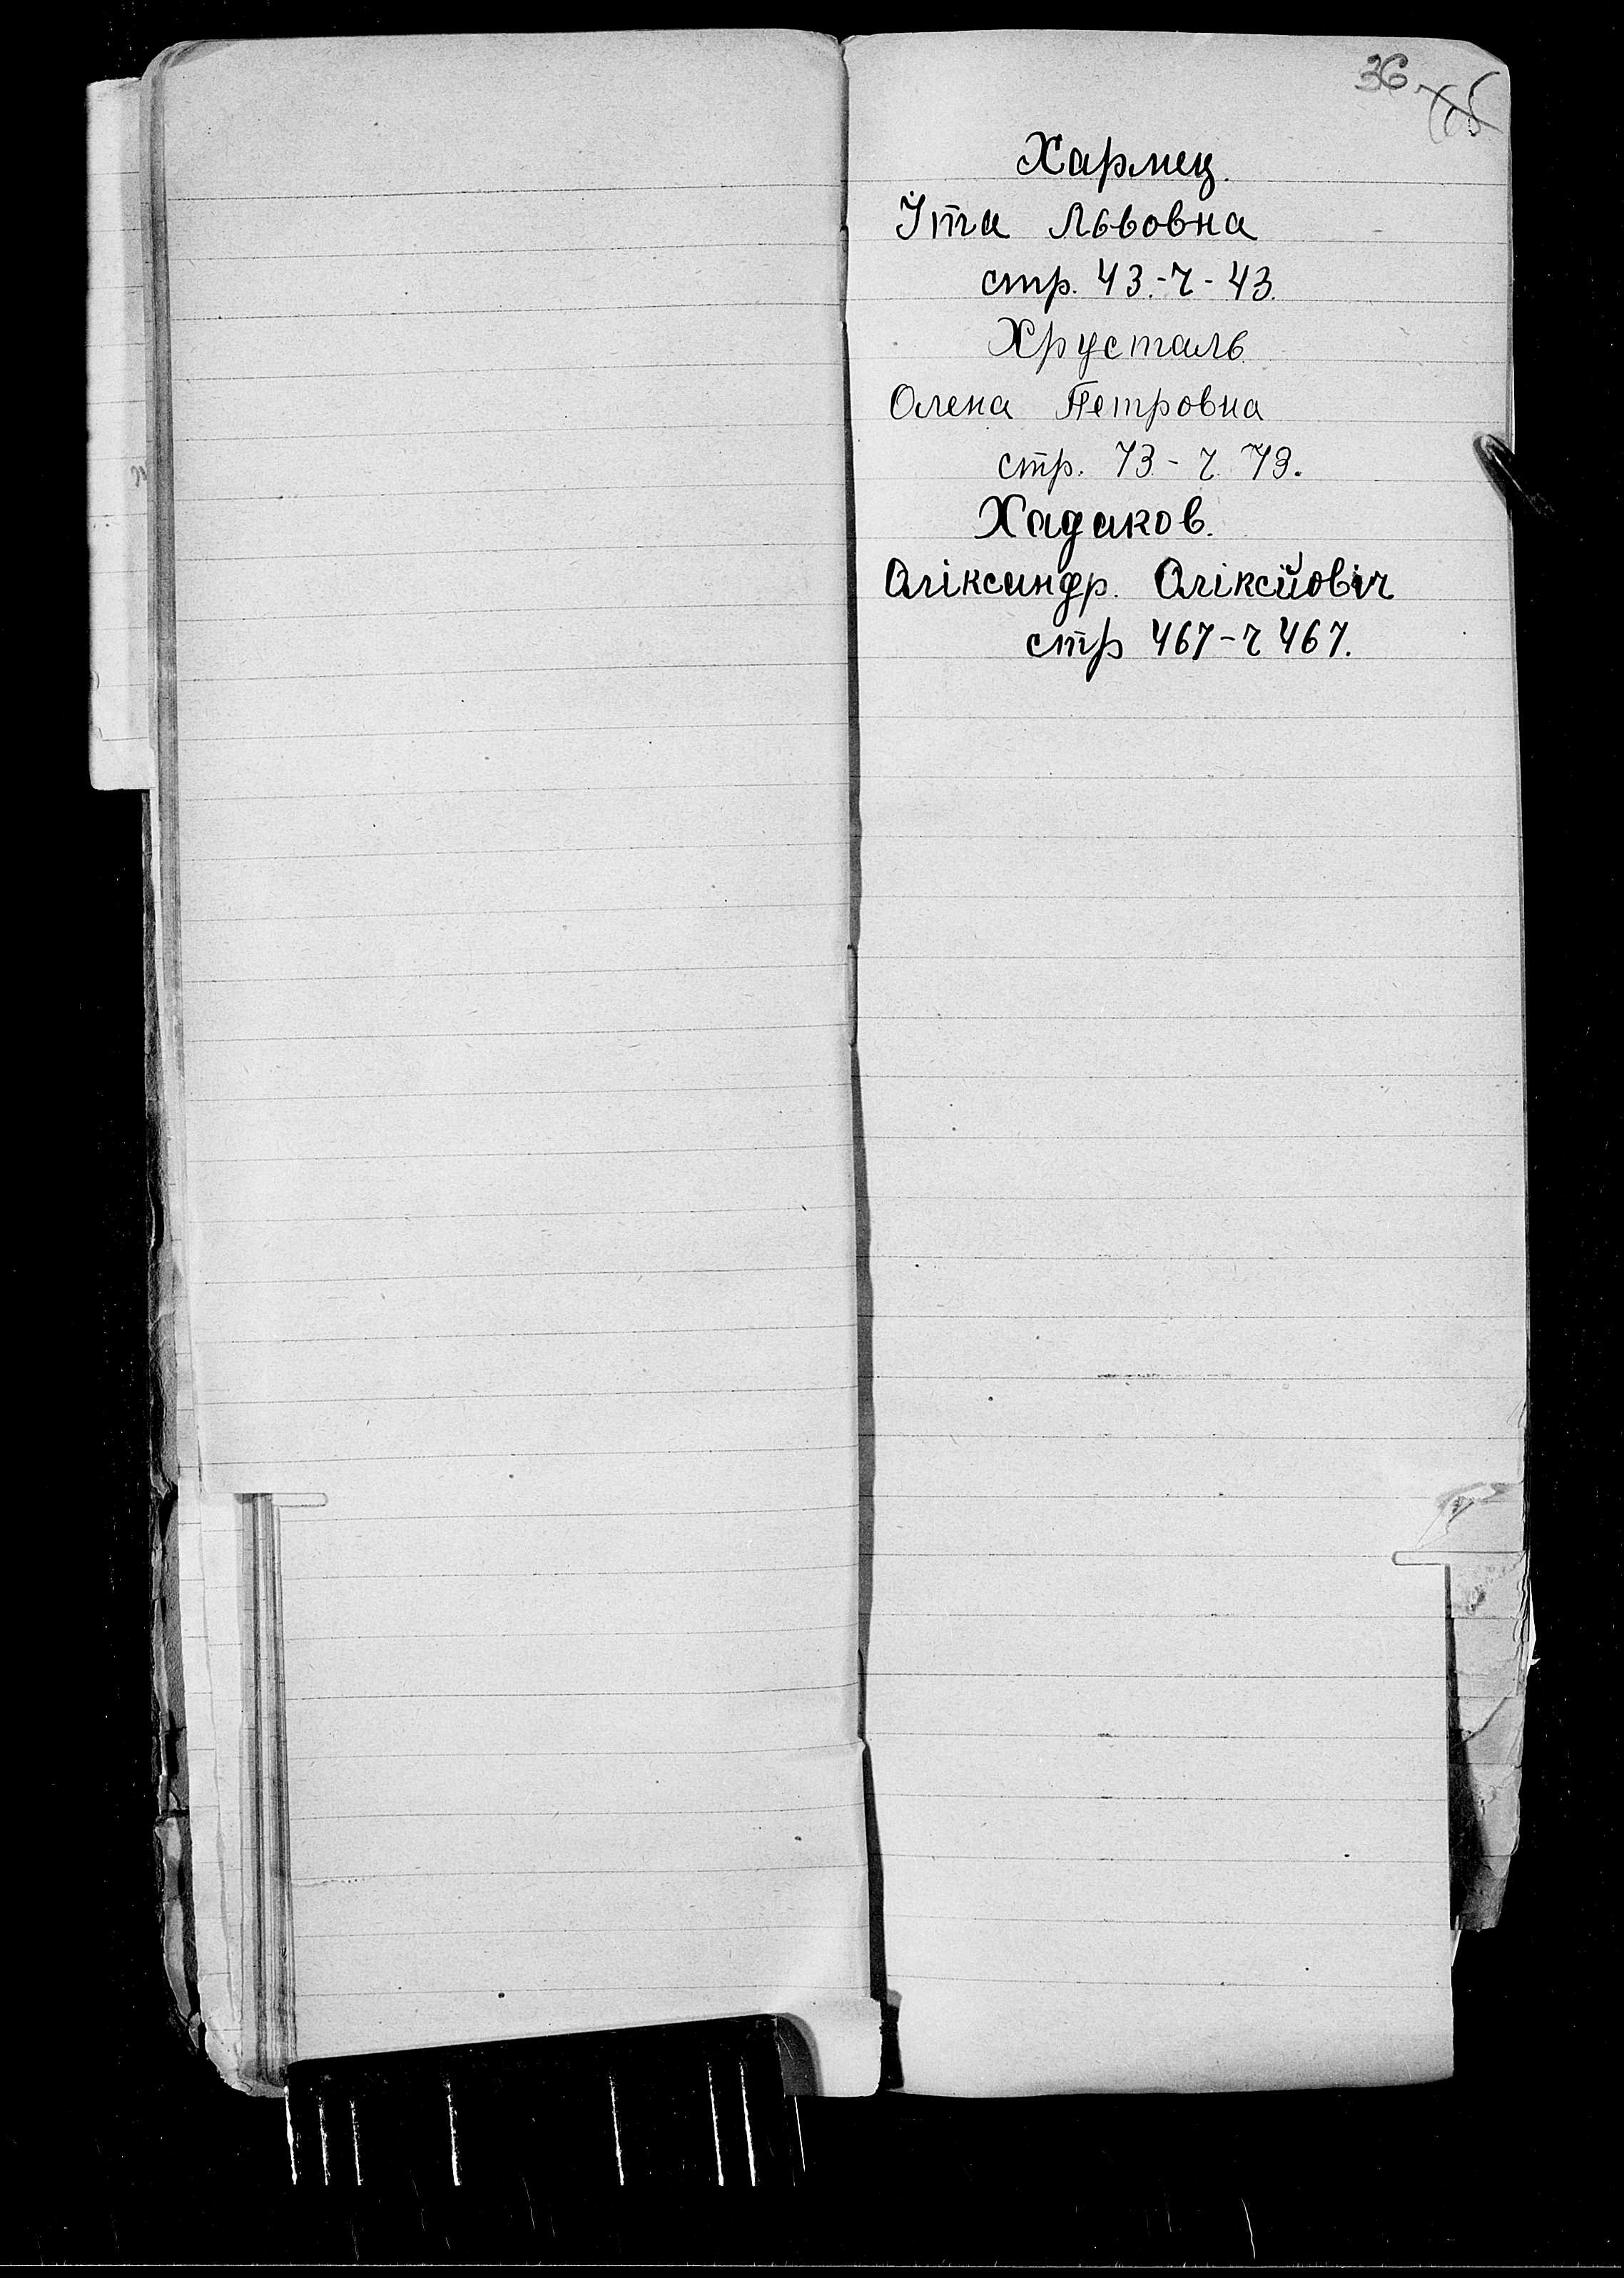 36
Хармец.
Їта Львовна
стр. 43.-ч-43.
Хрусталь
Олена Петровна
стр. 73-ч 73.
Хадаков.
Оліксандр. Оліксійовіч
стр 467-ч 467.